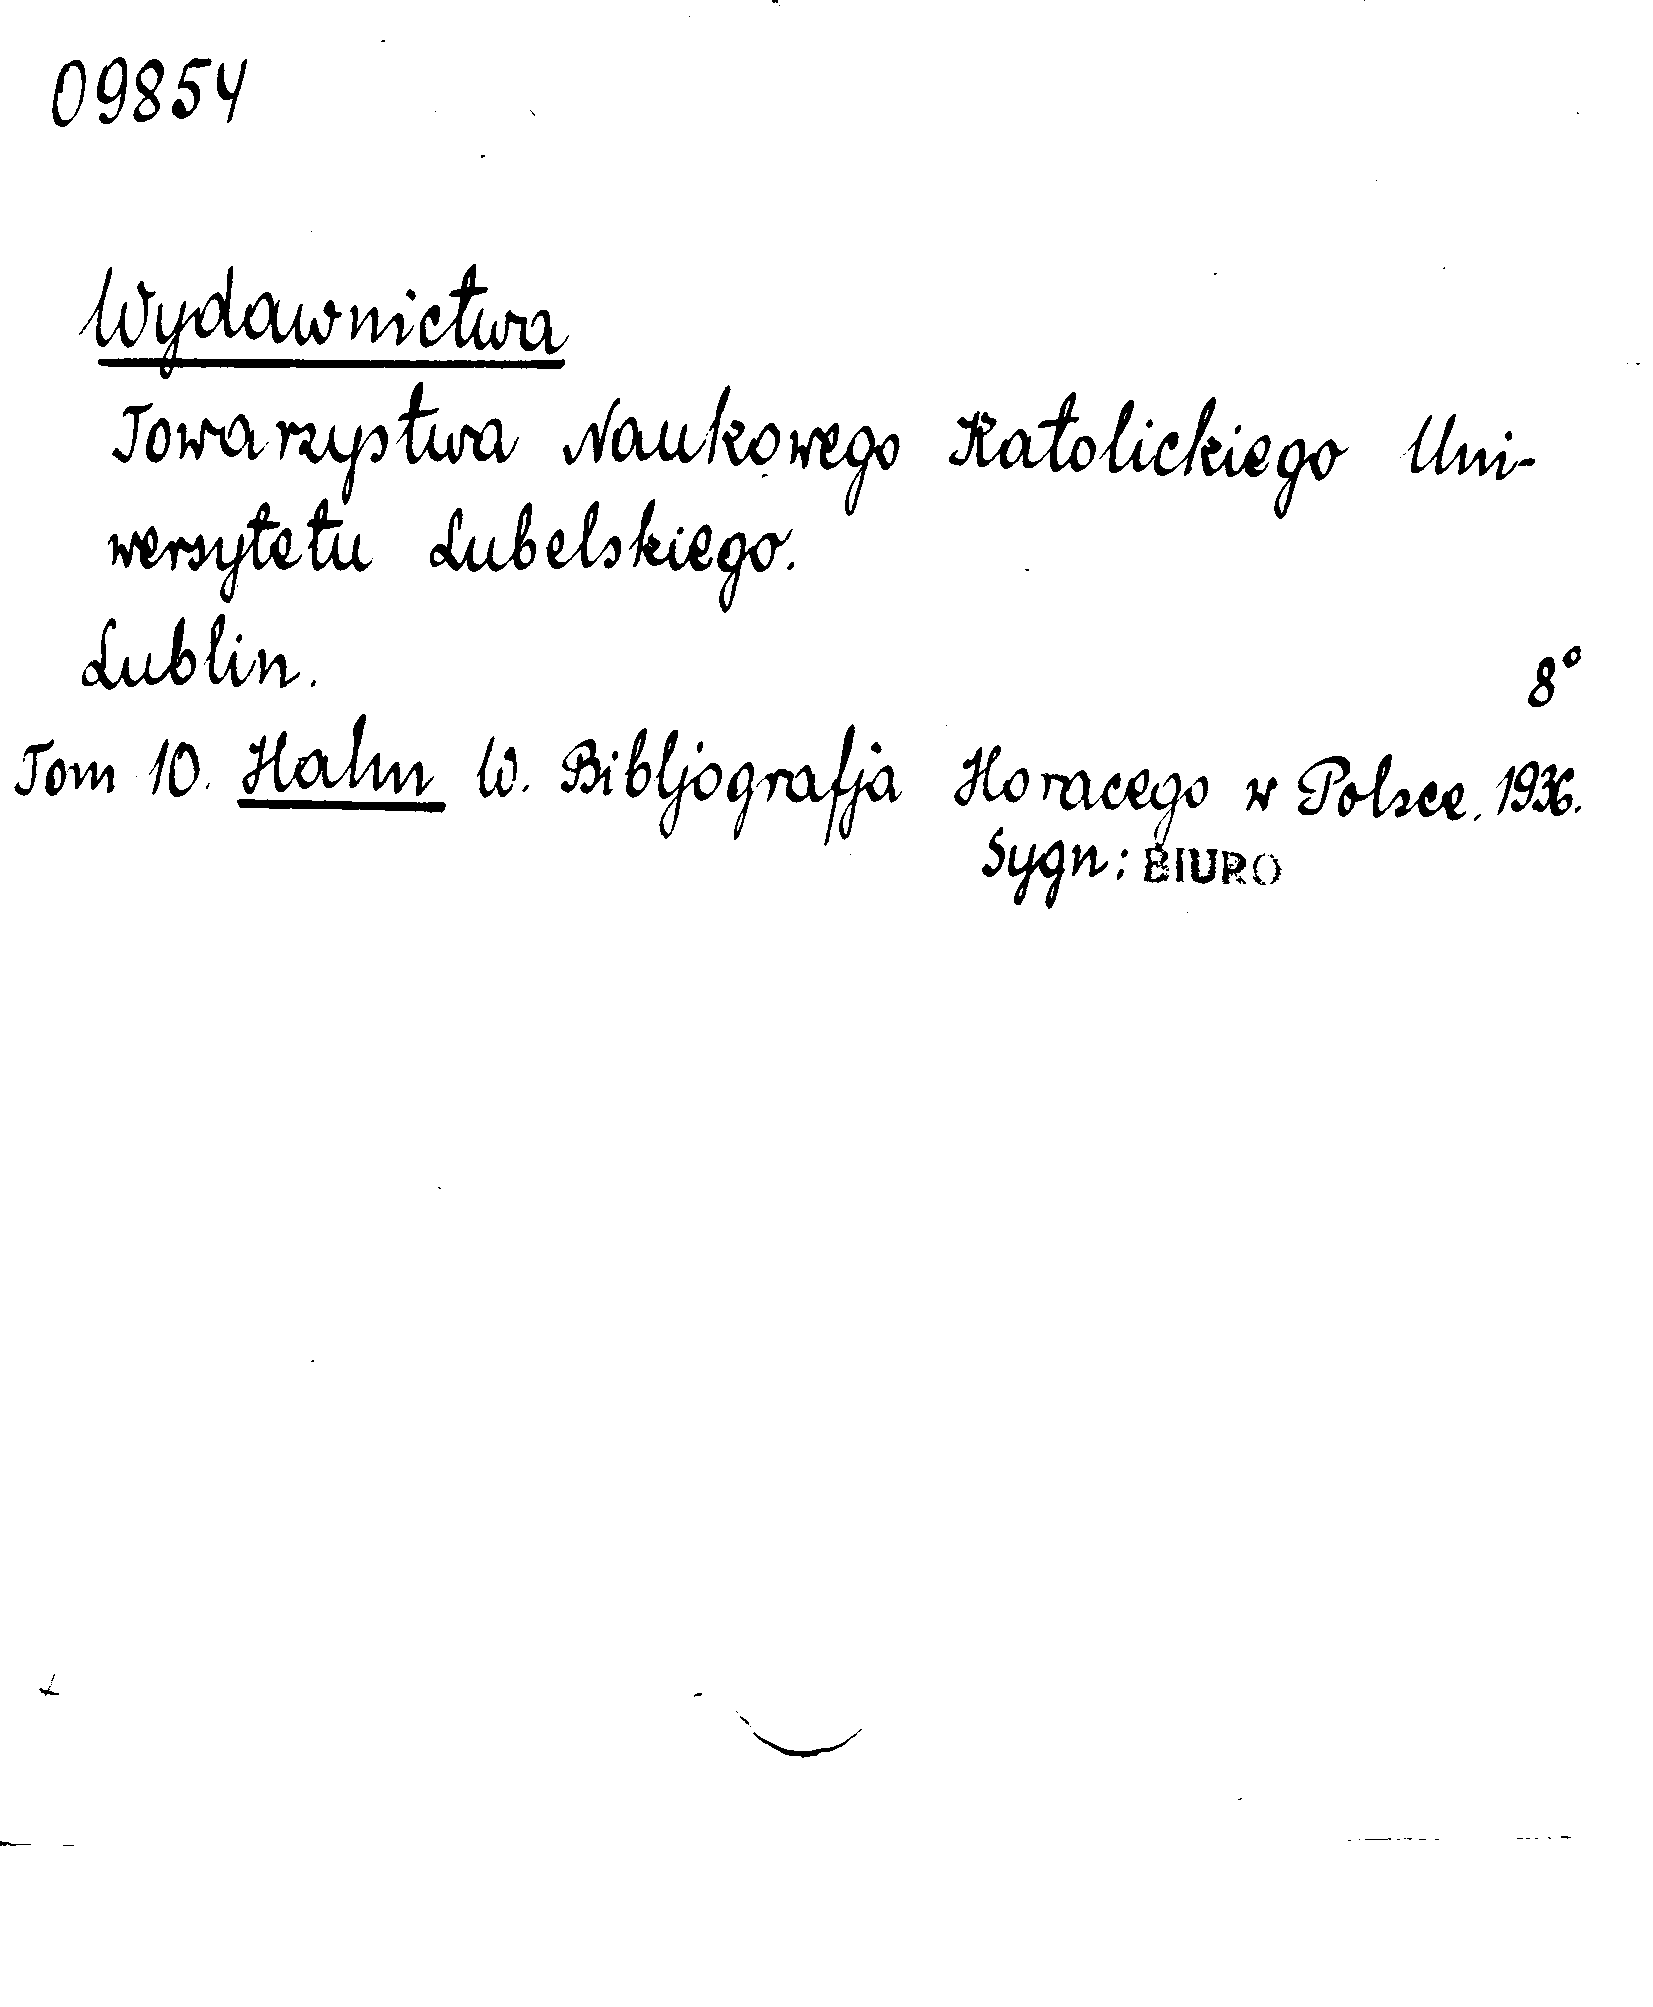 09854
Wydawnictwa
Towarzystwa Naukowego Katolickiego Uni-
wersytetu Lubelskiego.
Lublin.
8°
Tom 10. Hahn W. Bibljografja Horacego w Polsce. 1936.
Sygn: BIURO